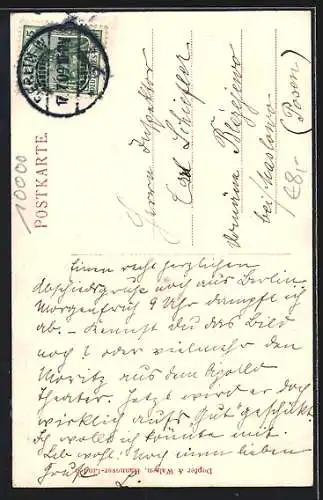 POSTKARTE.
10000
Herrn Inspektor
Carl Schiefer
Domäne
bei Kaslowo
(Posen)
£8,-
Einen recht herzlichen
Abschiedsgruß noch aus Berlin
Morgenfrüh 9 Uhr dampfe ich
ab. – Kennst du das Bild
noch? oder vielmehr den
Moritz aus dem Apollo
theater. Jetzt wird er doch
wirklich aufs "Gut" geschickt.
Ich wollte ich könnte mit.
Leb wohl! Noch einen lieben
Gruß L.
Hannover-Lind